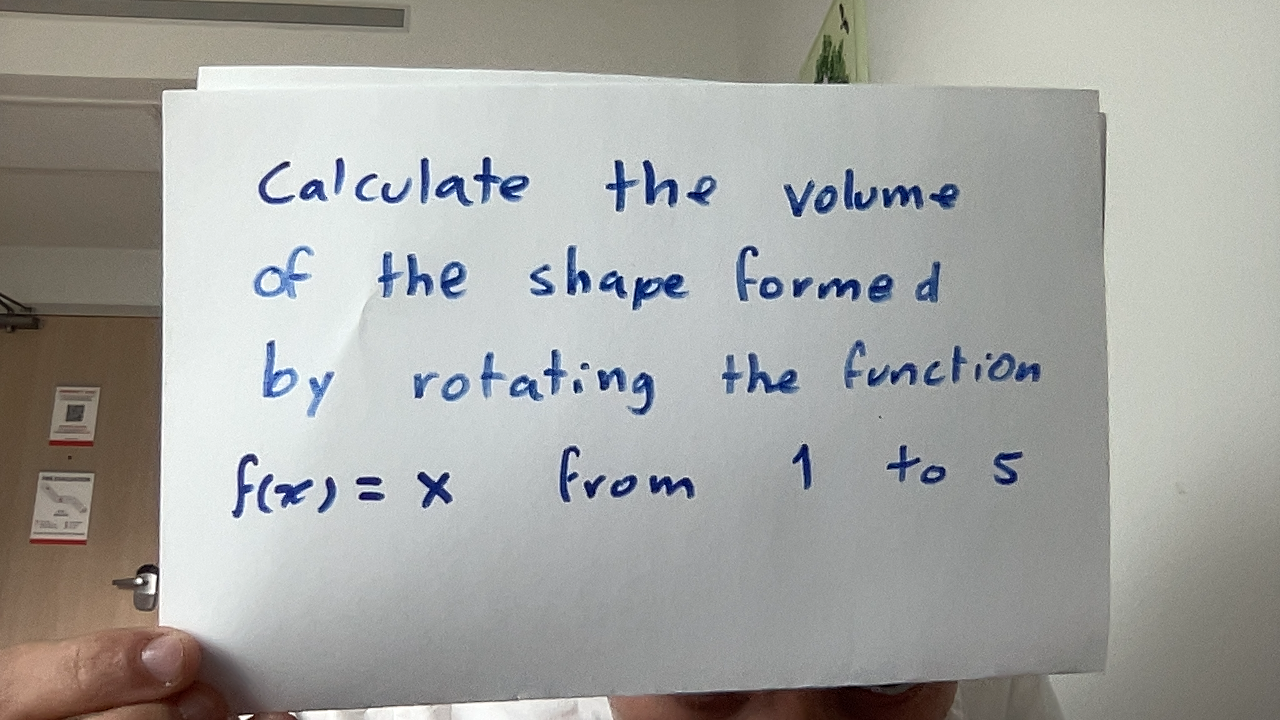 Calculate the volume
of the shape formed
by rotating the function
f(x) = x from 1 to 5